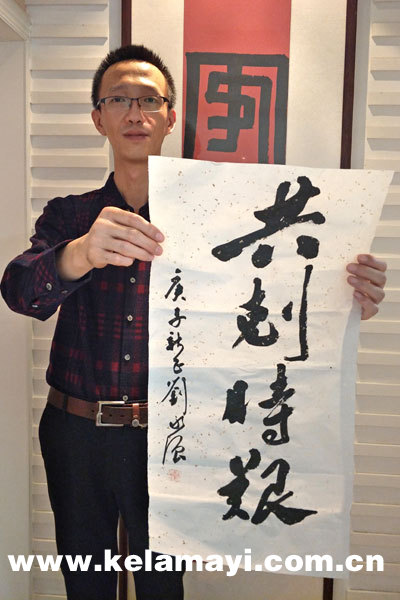 共剋時艱
庚子新正劉
www.kelamayi.com.cn